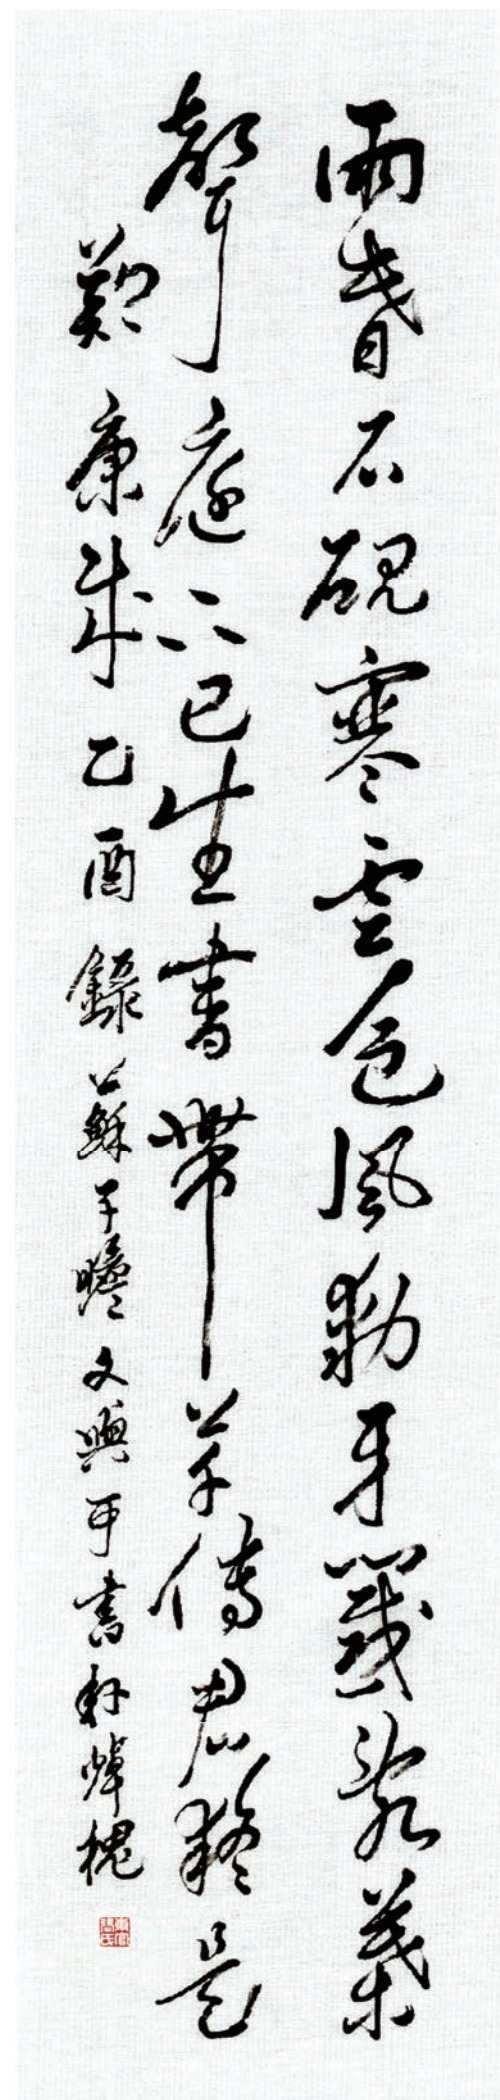 雨昏石硯寒雲色風動牙籤亂葉
聲庭下已生書帶草使君疑是
鄭康成乙酉錄蘇子瞻文與可書軒焯槐